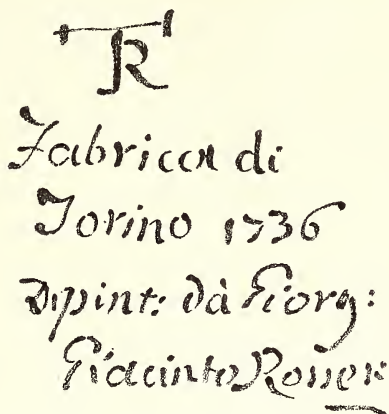 TR
Fabrica di
Torino 1736
Dipint: dà Giorg:
Giacinto Rosset: